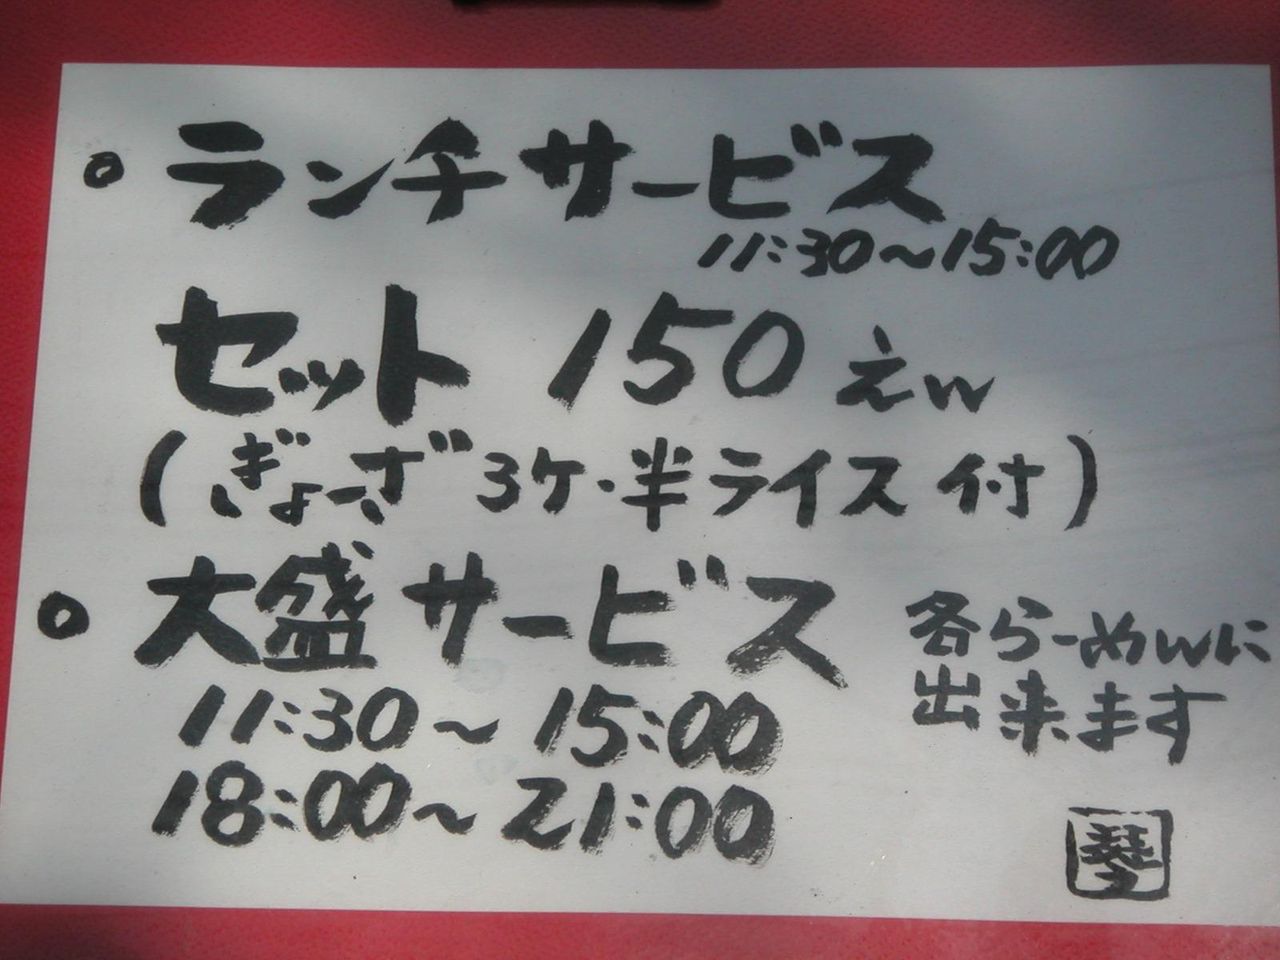 ○ランチサービス
11:30〜15:00
セット 150えん
(ぎょーざ3ケ・半ライス付)
○大盛サービス
11:30〜15:00
18:00〜21:00
各らーめんに
出来ます
琴